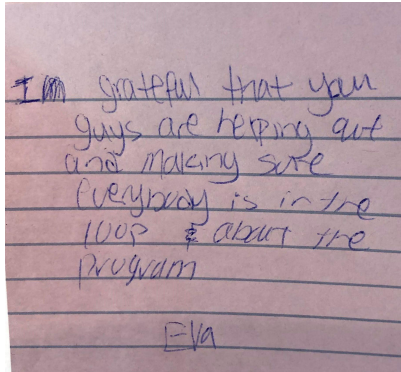 Im grateful that you
guys are helping out
and making sure
everybody is in the
loop & about the
program
Eva